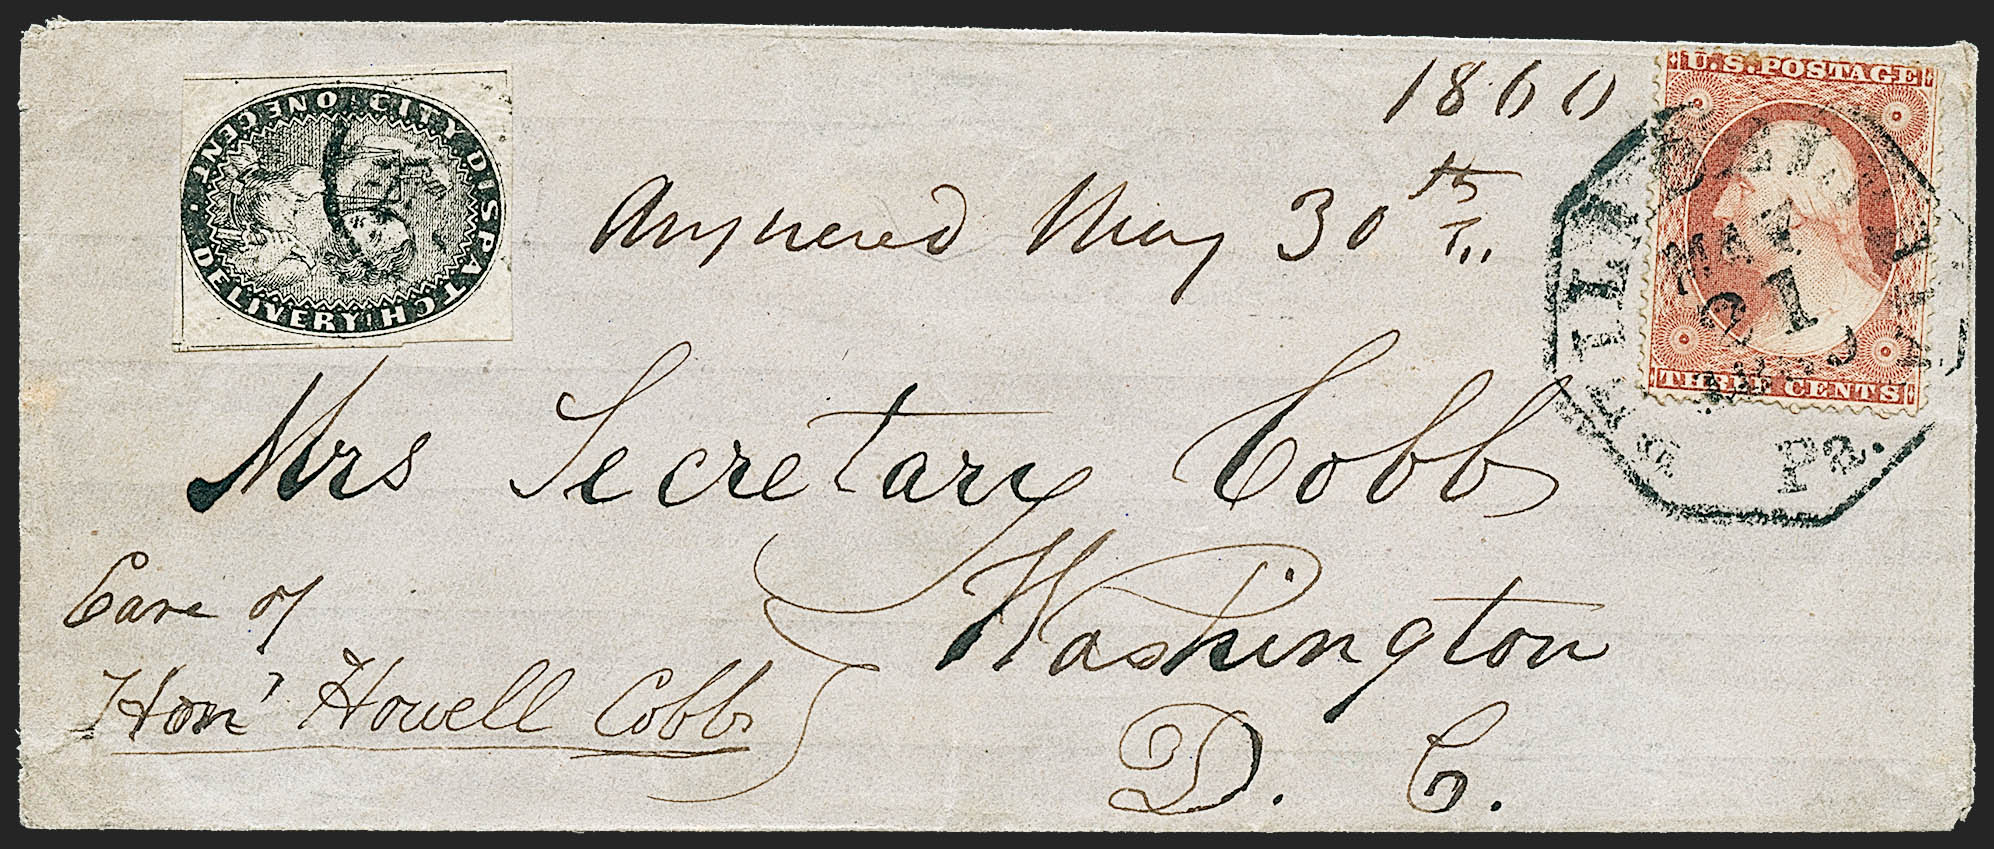 1860
U.S. POSTAGE
THREE CENTS
ONE CENT · CITY DISPATCH DELIVERY
PHILADELPHIA
MAY
21
1860
Pa.
Answered May 30th
Mrs Secretary Cobb
Washington
D. C.
Care of
Hon' Howell Cobb